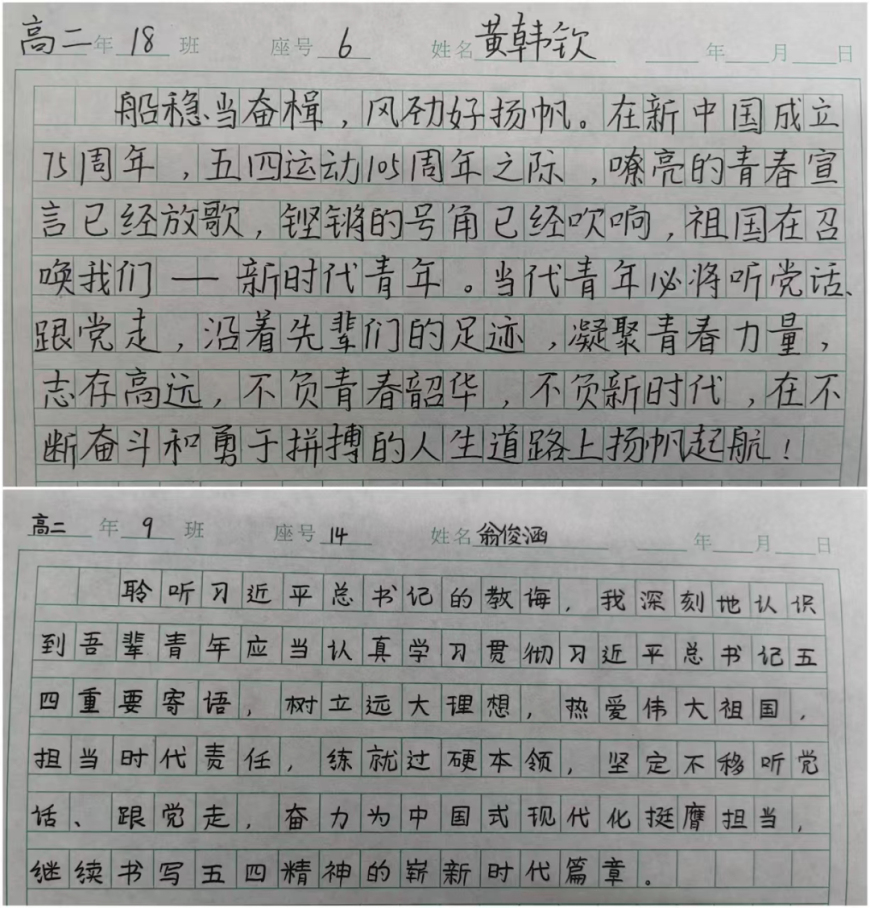 高二年 18 班 座号 6 姓名 黄韩钦 年 月 日
船稳当奋楫，风劲好扬帆。在新中国成立
75周年，五四运动105周年之际，嘹亮的青春宣
言已经放歌，铿锵的号角已经吹响，祖国在召
唤我们——新时代青年。当代青年必将听党话、
跟党走，沿着先辈们的足迹，凝聚青春力量，
志存高远，不负青春韶华，不负新时代，在不
断奋斗和勇于拼搏的人生道路上扬帆起航！
高二年 9 班 座号 14 姓名 翁俊涵 年 月 日
聆听习近平总书记的教诲，我深刻地认识
到吾辈青年应当认真学习贯彻习近平总书记五
四重要寄语，树立远大理想，热爱伟大祖国，
担当时代责任，练就过硬本领，坚定不移听党
话、跟党走，奋力为中国式现代化挺膺担当，
继续书写五四精神的崭新时代篇章。